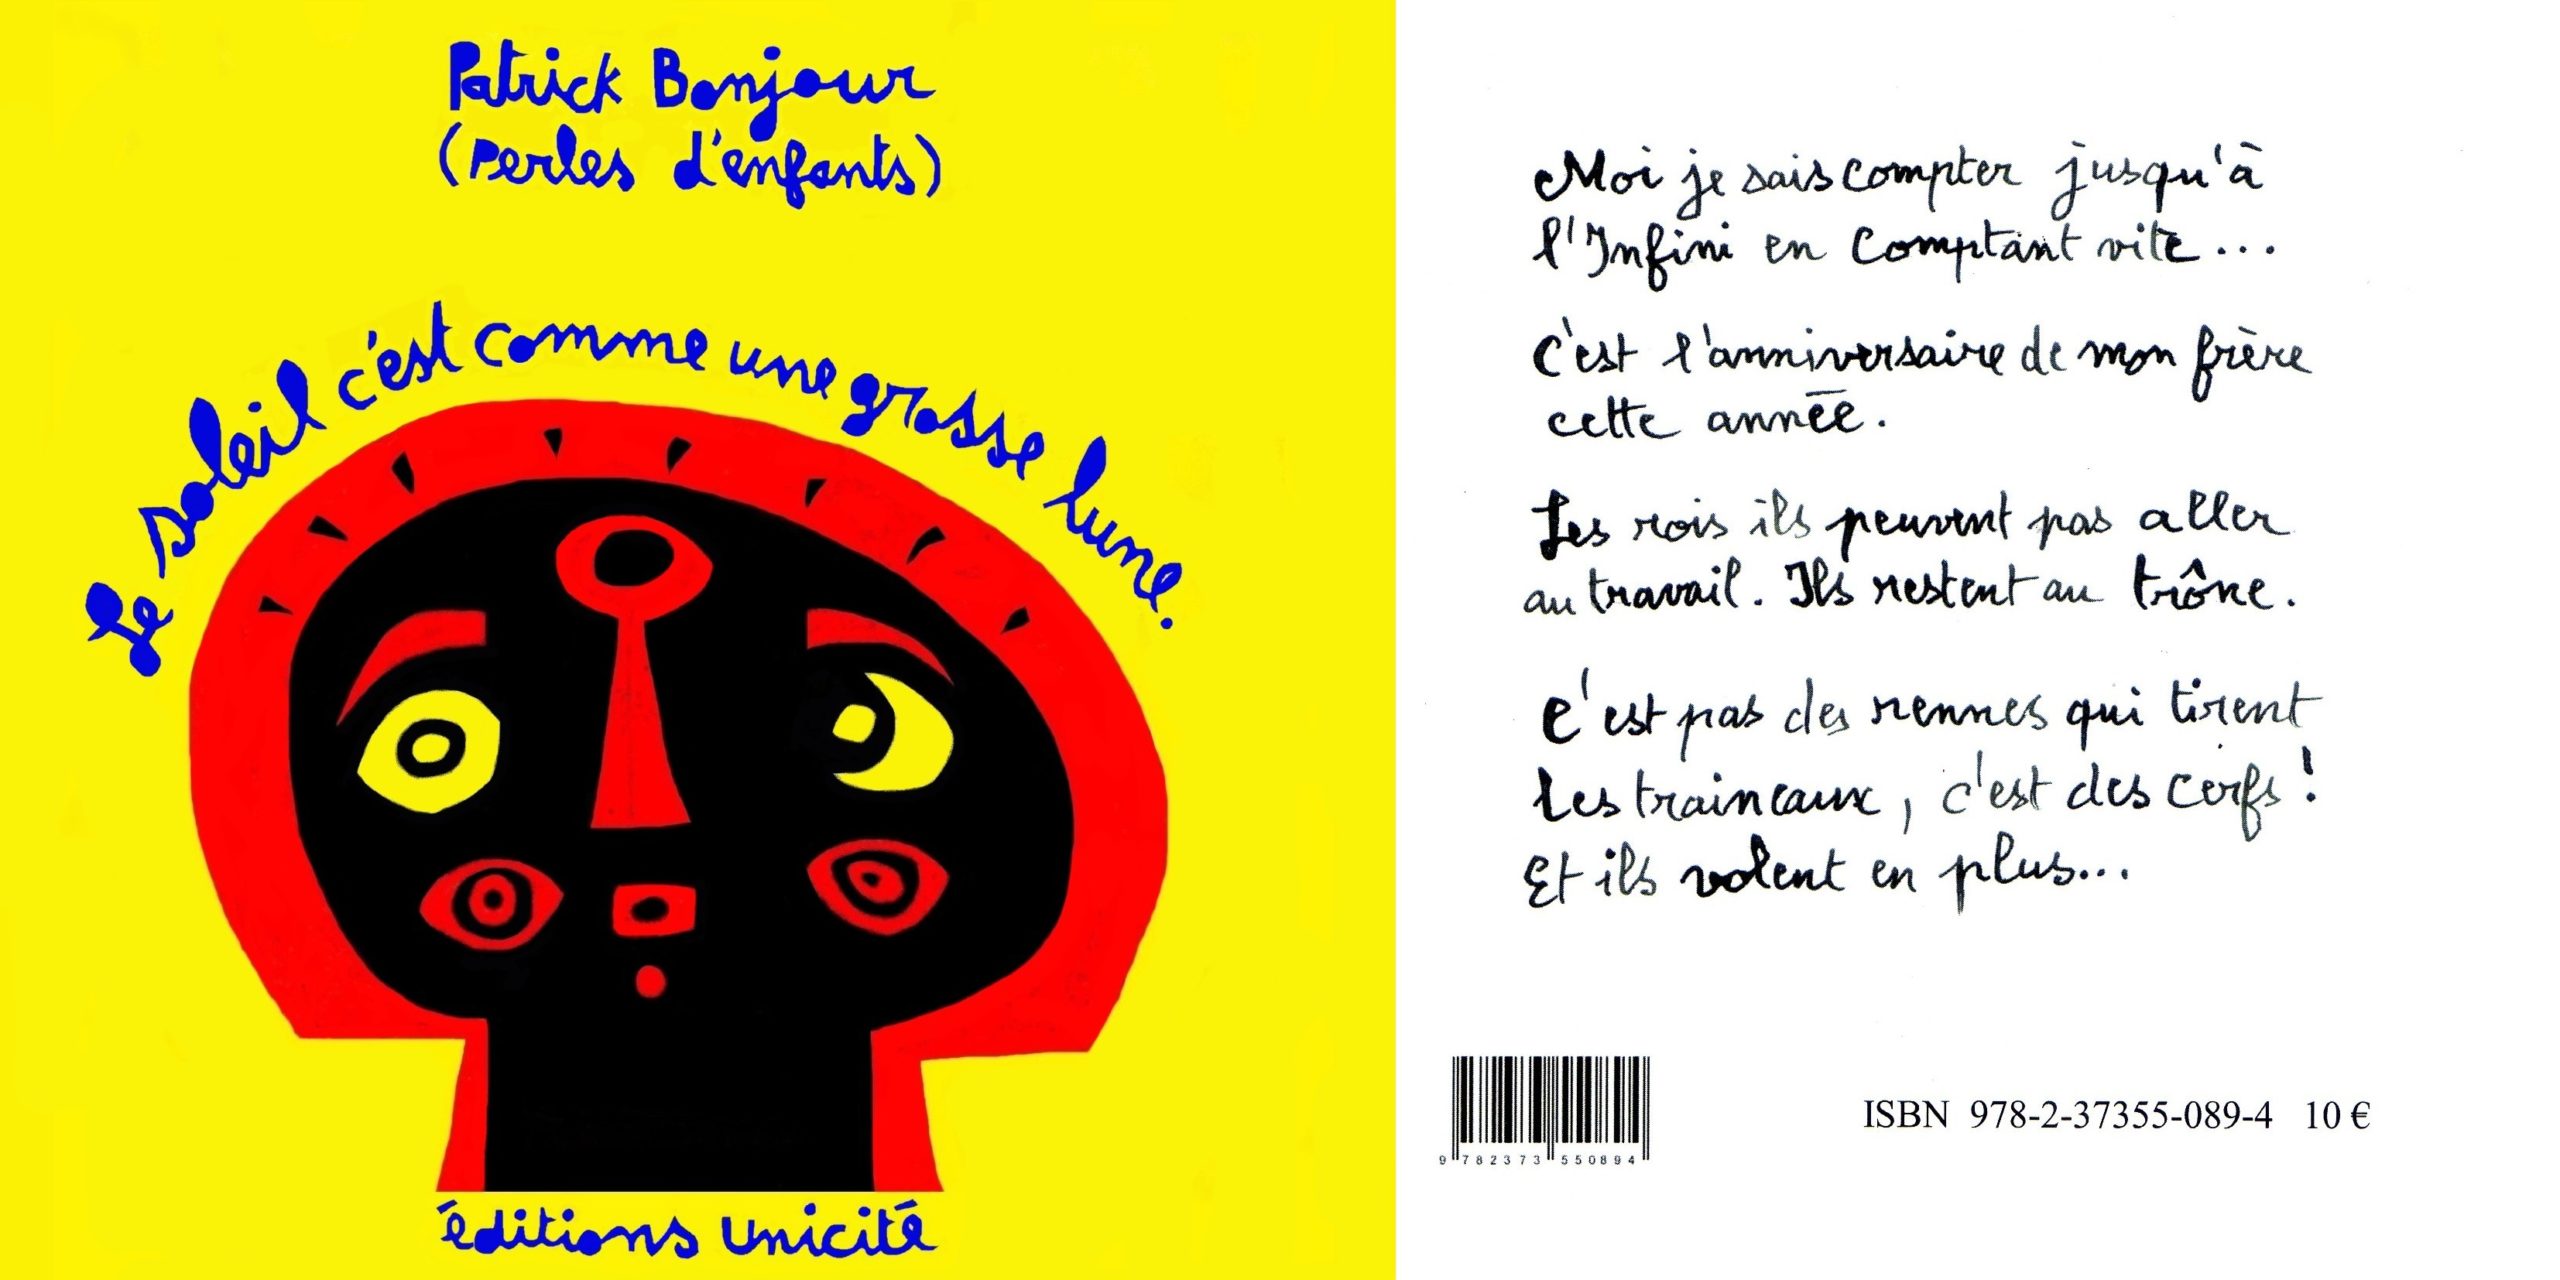 Patrick Bonjour
(Perles d'enfants)
Le soleil c'est comme une grosse lune.
éditions unicité
Moi je sais compter jusqu'à
l'Infini en comptant vite...
C'est l'anniversaire de mon frère
cette année.
Les rois ils peuvent pas aller
au travail. Ils restent au trône.
C'est pas des rennes qui tirent
les traineaux, c'est des cerfs !
Et ils volent en plus...
ISBN 978-2-37355-089-4 10 €
9 782373 550894